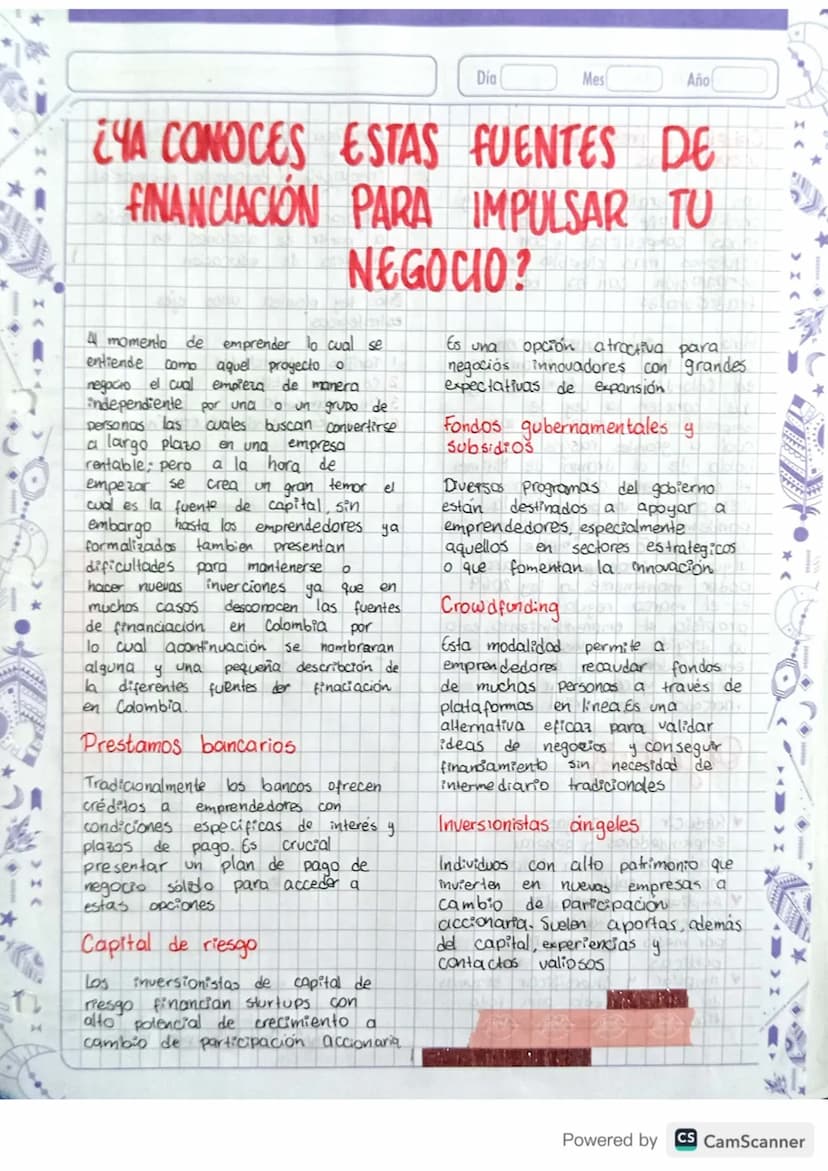 Día
Mes
Año
¿YA CONOCES ESTAS FUENTES DE
FINANCIACIÓN PARA IMPULSAR TU
NEGOCIO?
Al momento de emprender lo cual se
entiende como aquel proyecto o
negocio el cual empieza de manera
independiente por una o un grupo de
personas las cuales buscan convertirse
a largo plazo en una empresa
rentable; pero a la hora de
empezar se crea un gran temor el
cual es la fuente de capital, sin
embargo hasta los emprendedores ya
formalizados tambien presentan
dificultades para mantenerse o
hacer nuevas inverciones ya que en
muchos casos desconocen las fuentes
de financiación en Colombia por
lo cual acontinuación se nombraran
alguna y una pequeña describción de
la diferentes fuentes der finaciación
en Colombia.
Prestamos bancarios
Tradicionalmente los bancos ofrecen
créditos a emprendedores con
condiciones especificas de interés y
plazos de pago. Es crucial
presentar un plan de pago de
negocio sólido para acceder a
estas opciones
Capital de riesgo
Los inversionistas de capital de
riesgo financian sturtups con
alto potencial de crecimiento a
cambio de participación accionaria
Es una opción atractiva para
negocios innovadores con grandes
expectativas de expansión
Fondos gubernamentales y
subsidios
Diversos programas del gobierno
están destinados a apoyar a
emprendedores, especialmente
aquellos en sectores estrategicos
o que fomentan la innovación
Crowdfunding
Esta modalidad permite a
emprendedores recaudar fondos
de muchas personas a través de
plataformas en linea Es una
alternativa eficaz para validar
ideas de negocios y conseguir
financiamiento sin necesidad de
intermediario tradicionales
Inversionistas ángeles
Individuos con alto patrimonio que
invierten en nuevas empresas a
cambio de participación
accionaria. Suelen aportas, además
del capital, experiencias y
contactos valiosos
Powered by CS CamScanner